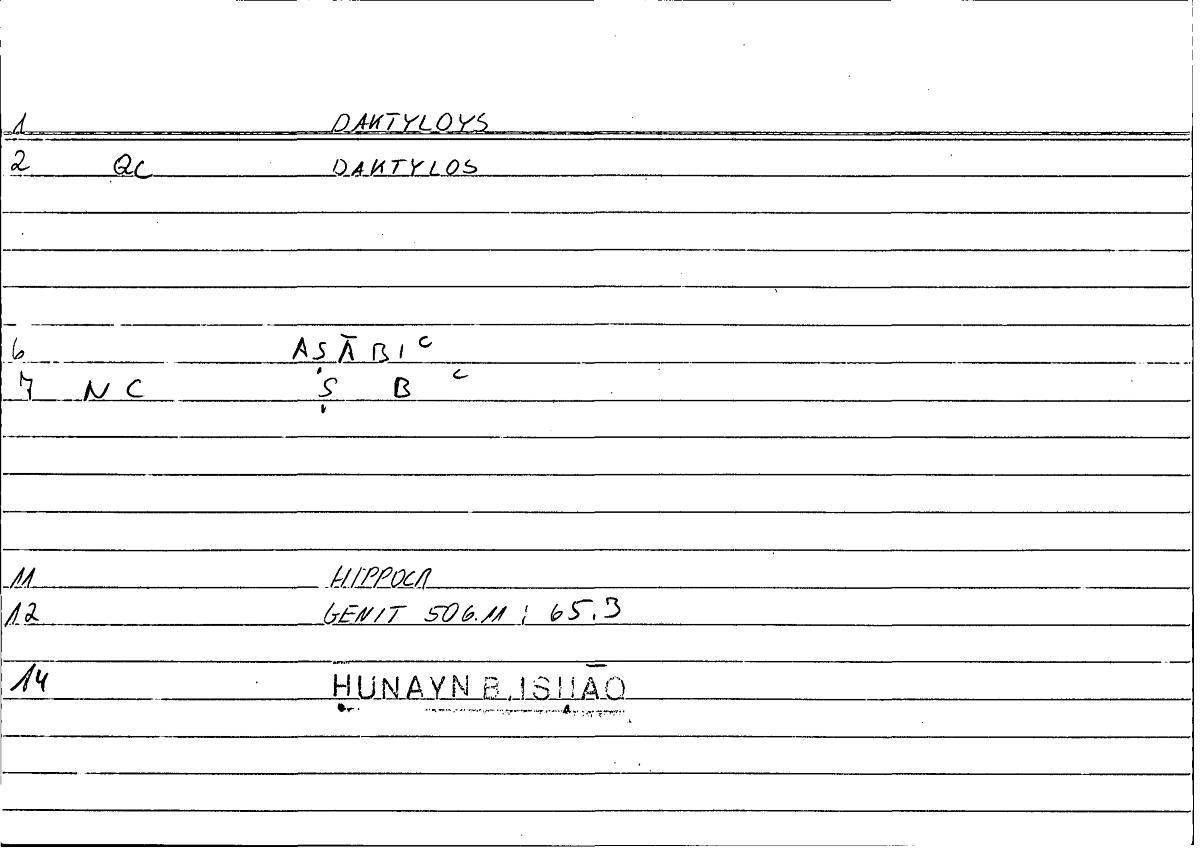 1 DAKTYLOYS
2 QC DAKTYLOS
6 AṢĀBIᶜ
7 NC Ṣ B ᶜ
11 HIPPOCR
12 GENIT 506.11 ; 65.3
14 ḤUNAYN B. ISḤĀQ